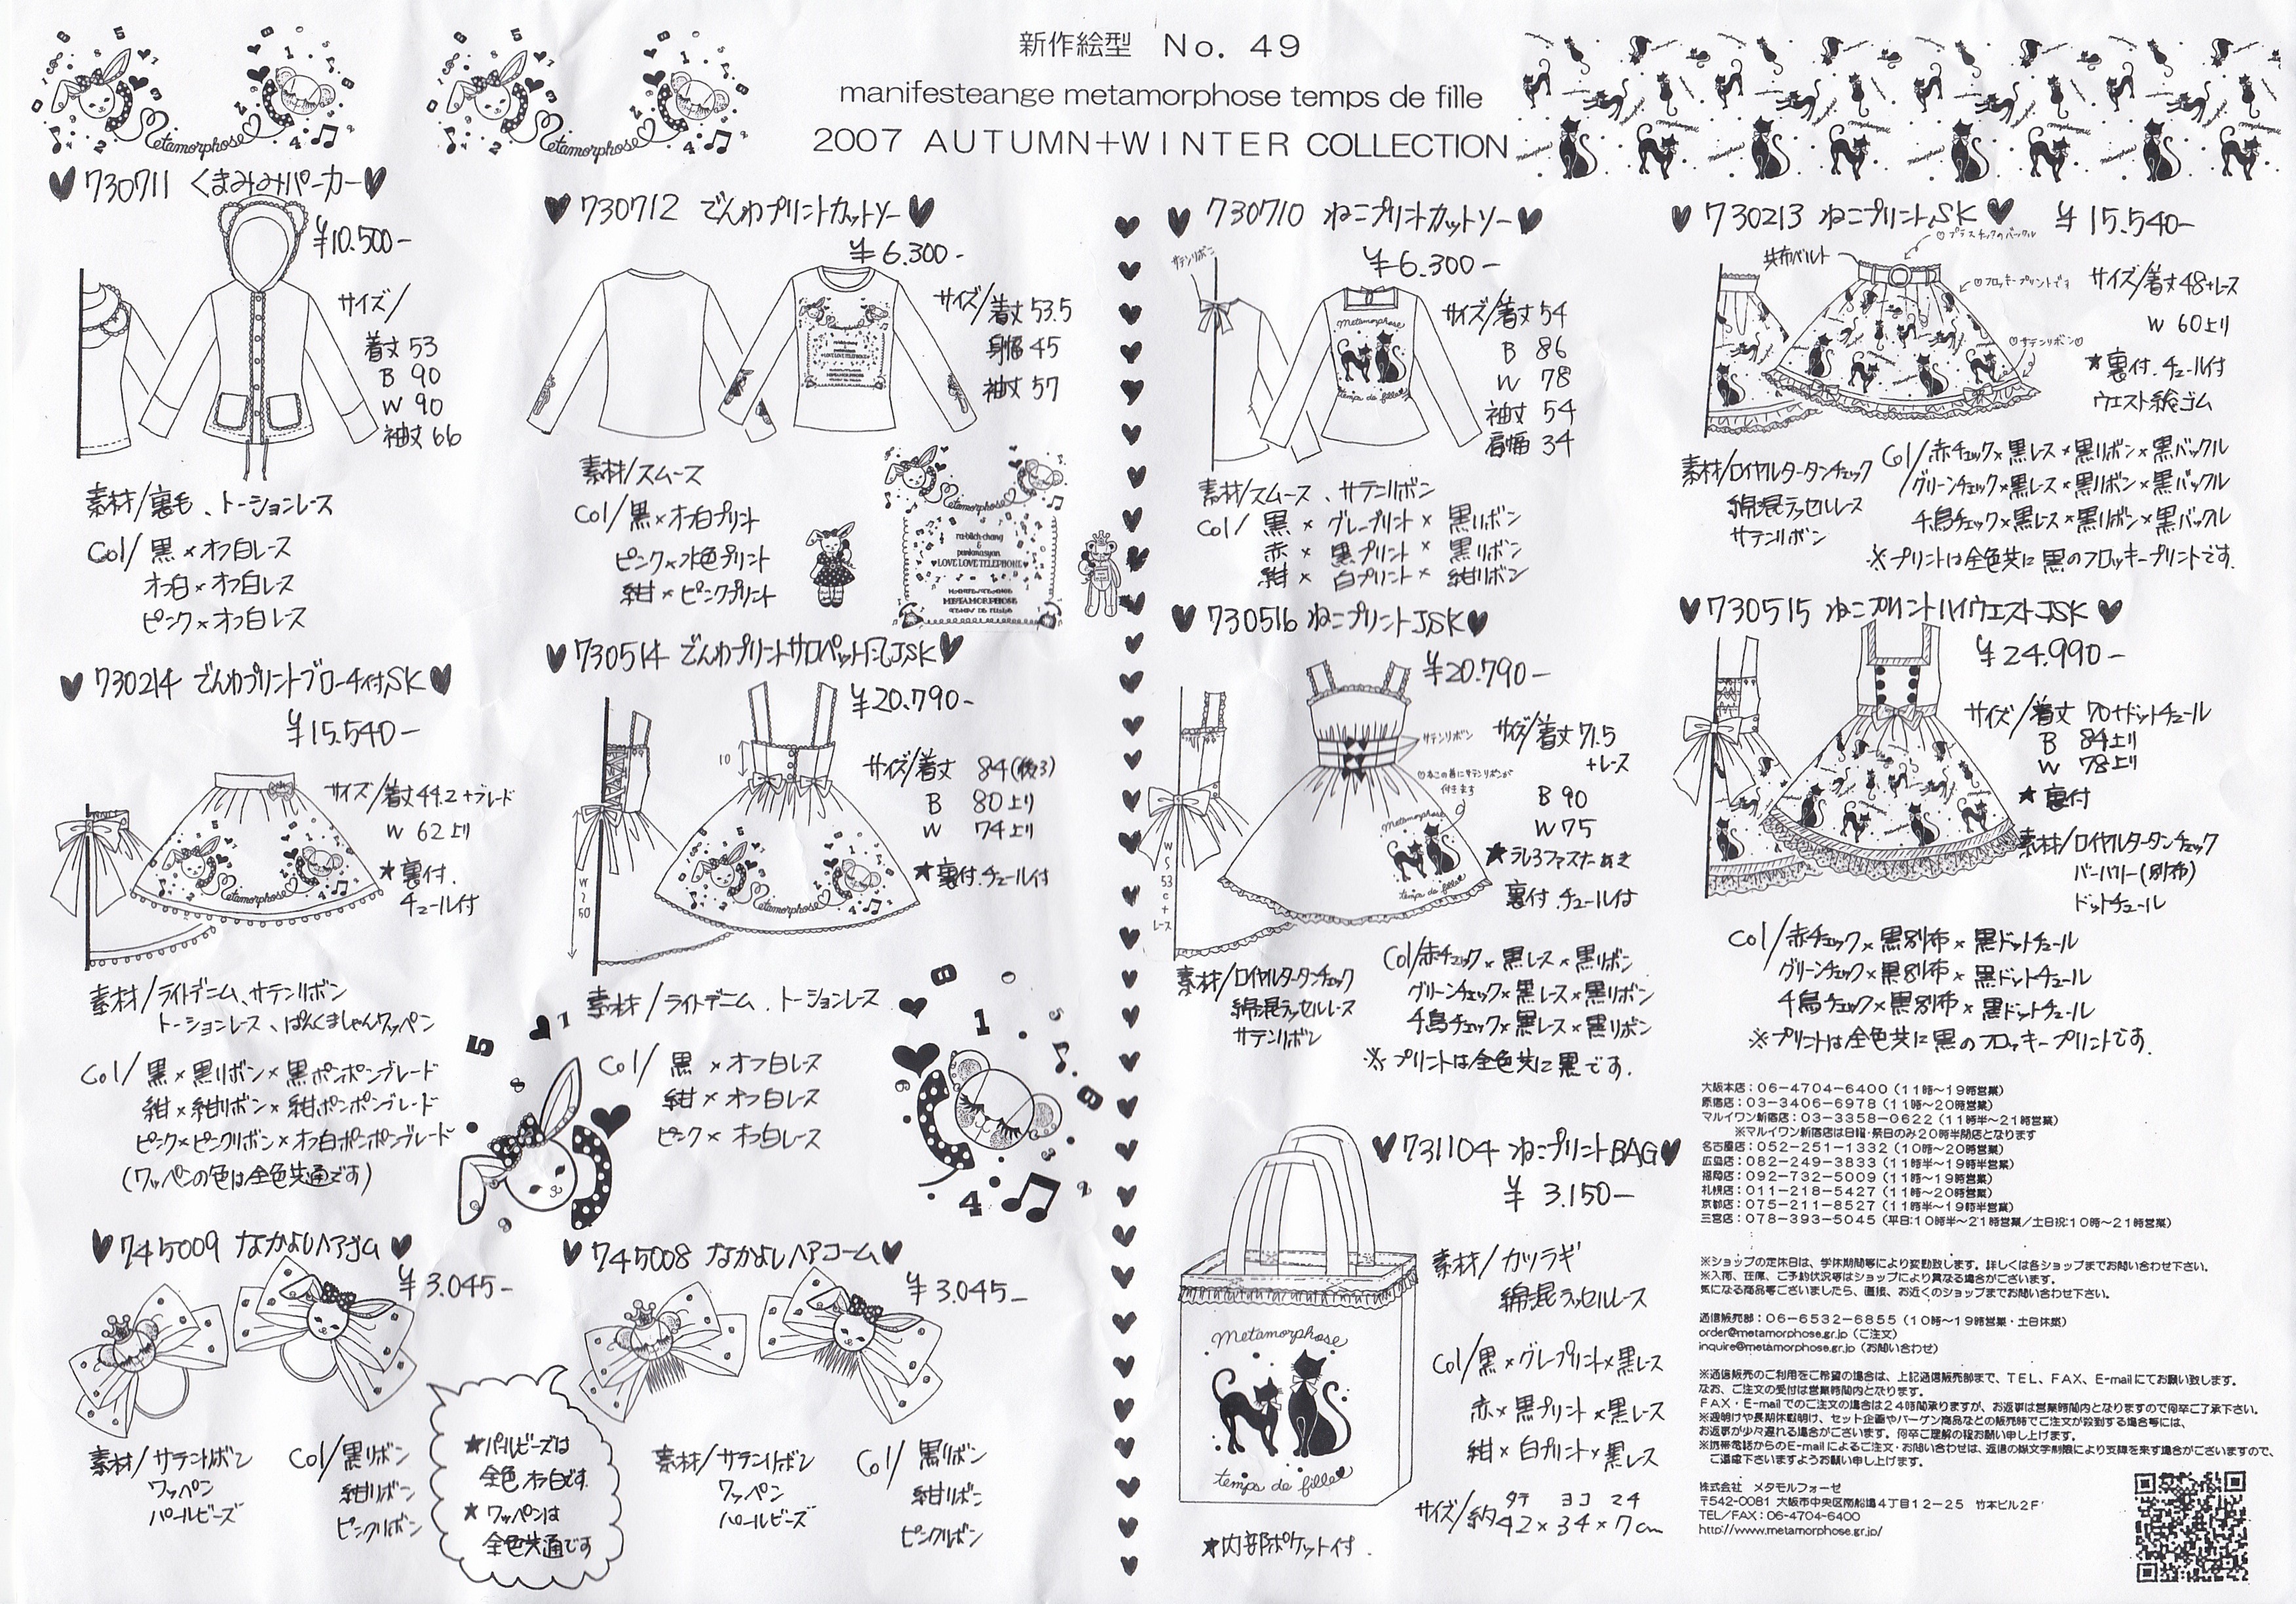 新作絵型 No. 49
manifesteange metamorphose temps de fille
2007 AUTUMN+WINTER COLLECTION
730711 くまみみパーカー
¥10.500-
サイズ/
着丈 53
B 90
W 90
袖丈 66
素材/裏毛、トーションレース
Col/黒×オフ白レース
オフ白×オフ白レース
ピンク×オフ白レース
730712 でんわプリントカットソー
¥6.300-
サイズ/着丈 53.5
身幅 45
袖丈 57
素材/スムース
Col/黒×オフ白プリント
ピンク×水色プリント
紺×ピンクプリント
Metamorphose
LOVE LOVE TELEPHONE
METAMORPHOSE
730214 でんわプリントブローチ付SK
¥15.540-
サイズ/着丈44.2+ブレード
W 62上り
★裏付.
チュール付
素材/ライトデニム、サテンリボン
トーションレース、ぱんくましゃんワッペン
Col/黒×黒リボン×黒ポンポンブレード
紺×紺リボン×紺ポンポンブレード
ピンク×ピンクリボン×オフ白ポンポンブレード
(ワッペンの色は全色共通です)
730514 でんわプリントサロペット風JSK
¥20.790-
10
サイズ/着丈 84(後3)
B 80上り
W 74上り
★裏付.チュール付
素材/ライトデニム.トーションレース
Col/黒×オフ白レース
紺×オフ白レース
ピンク×オフ白レース
745009 なかよしヘアゴム
¥3.045-
素材/サテンリボン
ワッペン
パールビーズ
Col/黒リボン
紺リボン
ピンクリボン
★パールビーズは
全色オフ白です.
★ワッペンは
全色共通です
745008 なかよしヘアコーム
¥3.045-
素材/サテンリボン
ワッペン
パールビーズ
Col/黒リボン
紺リボン
ピンクリボン
730710 ねこプリントカットソー
¥6.300-
サテンリボン
Metamorphose
temps de fille
サイズ/着丈 54
B 86
W 78
袖丈 54
肩幅 34
素材/スムース、サテンリボン
Col/黒×グレープリント×黒リボン
赤×黒プリント×黒リボン
紺×白プリント×紺リボン
730213 ねこプリントSK ¥15.540-
プラスチックのバックル
共布ベルト
フロッキープリントです
サテンリボン
サイズ/着丈48+レース
W 60上り
★裏付.チュール付
ウエスト総ゴム
素材/ロイヤルタータンチェック
綿混ラッセルレース
サテンリボン
Col/赤チェック×黒レース×黒リボン×黒バックル
グリーンチェック×黒レース×黒リボン×黒バックル
千鳥チェック×黒レース×黒リボン×黒バックル
※プリントは全色共に黒のフロッキープリントです.
730516 ねこプリントJSK
¥20.790-
サテンリボン
ねこの首にサテンリボンが
付きます
Metamorphose
temps de fille
サイズ/着丈 71.5
+レース
B 90
W 75
★うしろファスナーあき
裏付.チュール付
素材/ロイヤルタータンチェック
綿混ラッセルレース
サテンリボン
Col/赤チェック×黒レース×黒リボン
グリーンチェック×黒レース×黒リボン
千鳥チェック×黒レース×黒リボン
※プリントは全色共に黒です.
730515 ねこプリントハイウエストJSK
¥24.990-
サイズ/着丈 70+ドットチュール
B 84上り
W 78上り
★裏付
素材/ロイヤルタータンチェック
バーバリー(別布)
ドットチュール
Col/赤チェック×黒別布×黒ドットチュール
グリーンチェック×黒別布×黒ドットチュール
千鳥チェック×黒別布×黒ドットチュール
※プリントは全色共に黒のフロッキープリントです.
731104 ねこプリントBAG
¥3.150-
Metamorphose
temps de fille
素材/カツラギ
綿混ラッセルレース
Col/黒×グレープリント×黒レース
赤×黒プリント×黒レース
紺×白プリント×黒レース
タテ ヨコ マチ
サイズ/約42×34×7cm
★内部ポケット付.
大阪本店:06-4704-6400(11時~19時営業)
原宿店:03-3406-6978(11時~20時営業)
マルイワン新宿店:03-3358-0622(11時半~21時営業)
※マルイワン新宿店は日曜・祭日のみ20時半閉店となります
名古屋店:052-251-1332(10時~20時営業)
広島店:082-249-3833(11時半~19時半営業)
福岡店:092-732-5009(11時~19時営業)
札幌店:011-218-5427(11時~20時営業)
京都店:075-211-8527(11時半~19時半営業)
三宮店:078-393-5045(平日:10時半~21時営業/土日祝:10時~21時営業)
※ショップの定休日は、学休期間等により変動致します。詳しくは各ショップまでお問い合わせ下さい。
※入荷、在庫、ご予約状況等はショップにより異なる場合がございます。
気になる商品等ございましたら、直接、お近くのショップまでお問い合わせ下さい。
通信販売部:06-6532-6855(10時~19時営業・土日休業)
order@metamorphose.gr.jp(ご注文)
inquire@metamorphose.gr.jp(お問い合わせ)
※通信販売のご利用をご希望の場合は、上記通信販売部まで、TEL、FAX、E-mailにてお願い致します。
なお、ご注文の受付は営業時間内となります。
FAX・E-mailでのご注文の場合は24時間承りますが、お返事は営業時間内となりますので何卒ご了承下さい。
※週明けや長期休暇明け、セット企画やバーゲン商品などの販売時でご注文が殺到する場合等には、
お返事が少々遅れる場合がございます。何卒ご理解の程お願い申し上げます。
※携帯電話からのE-mailによるご注文・お問い合わせは、返信の際文字制限により支障を来す場合がございますので、
ご遠慮下さいますようお願い申し上げます。
株式会社 メタモルフォーゼ
〒542-0081 大阪市中央区南船場4丁目12-25 竹本ビル2F
TEL/FAX:06-4704-6400
http://www.metamorphose.gr.jp/